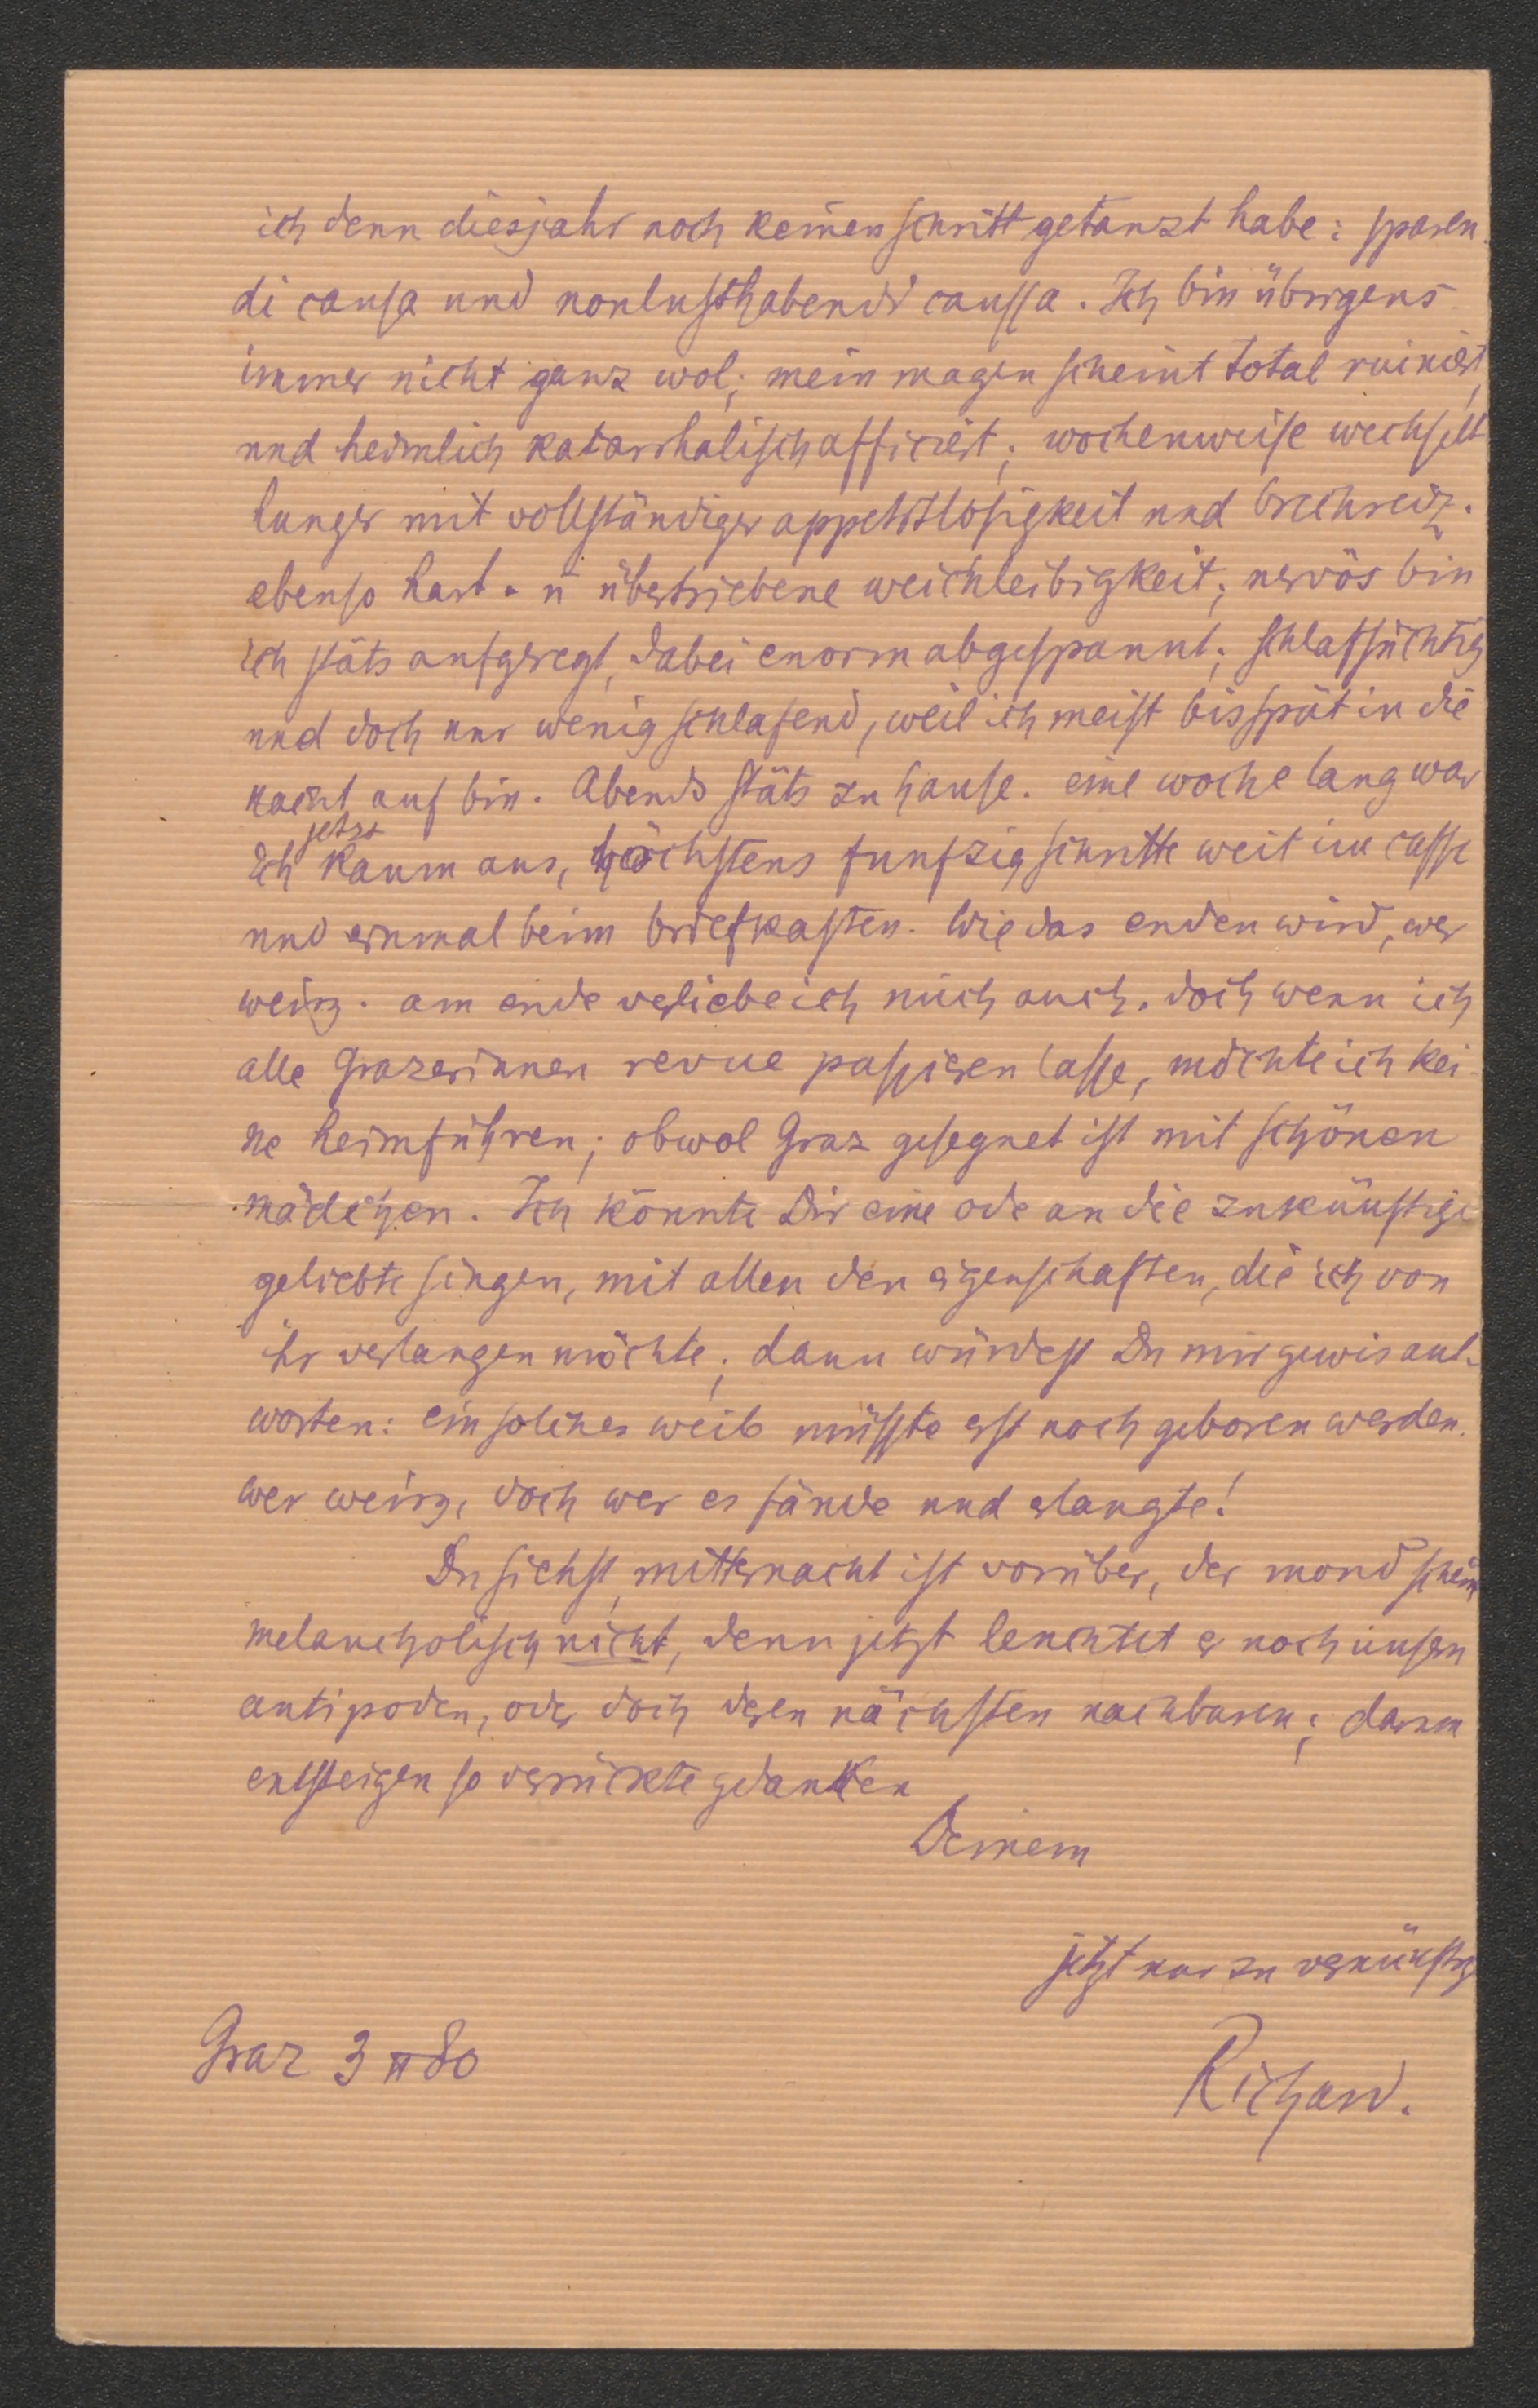 ich denn diesjahr noch keinen schritt getanzt habe: sparen-
di causa und nonlusthabendi caussa. Ich bin übrigens
immer nicht ganz wol; mein magen scheint total ruiniert,
und heimlich katarrhalisch afficiert; wochenweise wechselt
hunger mit vollständiger appetitlosigkeit und brechreiz.
ebenso hart- u̅ übertriebene weichleibigkeit; nervös bin
ich stäts aufgeregt, dabei enorm abgespannt; schlafsüchtig
und doch nur wenig schlafend, weil ich meist bis spät in die
nacht auf bin. Abends stäts zu hause. eine woche lang war
Ich jetzt kaum aus, höchstens funfzig schritte weit im caffe
und einmal beim briefkasten. Wie das enden wird, wer
weisz. am ende verliebe ich mich auch. doch wenn ich
alle Grazerinnen revue passieren lasse, möchte ich kei-
ne heimführen; obwol Graz gesegnet ist mit schönen
mädchen. Ich könnte Dir eine ode an die zukünftige
geliebte singen, mit allen den eigenschaften, die ich von
ihr verlangen möchte; dann würdest Du mir gewis ant-
worten: ein solches weib müsste erst noch geboren werden.
wer weisz, doch wer es fände und erlangte!
Du siehst, mitternacht ist vorüber, der mond scheint
melancholisch nicht, denn jetzt leuchtet er noch unsern
antipoden, oder doch deren nächsten nachbaren; darum
entsteigen so verrückte gedanken
Deinem
jetzt nur zu vernünftig
Richard.
Graz 3 II 80